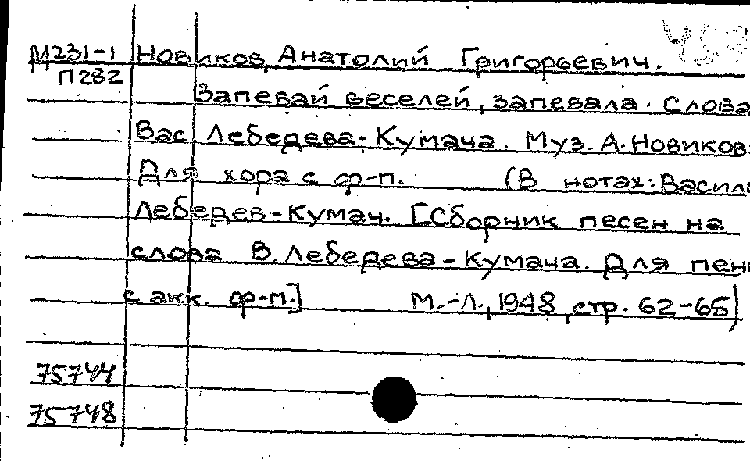 М231-1 Новиков, Анатолий Григорьевич.
П282
Запевай веселей, запевала. Слова
Вас. Лебедева-Кумача. Муз. А. Новиков
Для хора с ф-п. (В нотах: Василь
Лебедев-Кумач. [Сборник песен на
слова В. Лебедева-Кумача. Для пени
с акк. ф-п.] М.-Л., 1948, стр. 62-65)
75744
75748